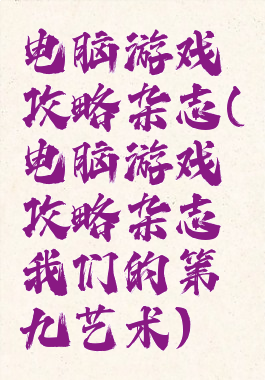 电脑游戏
攻略杂志(
电脑游戏
攻略杂志
我们的第
九艺术)